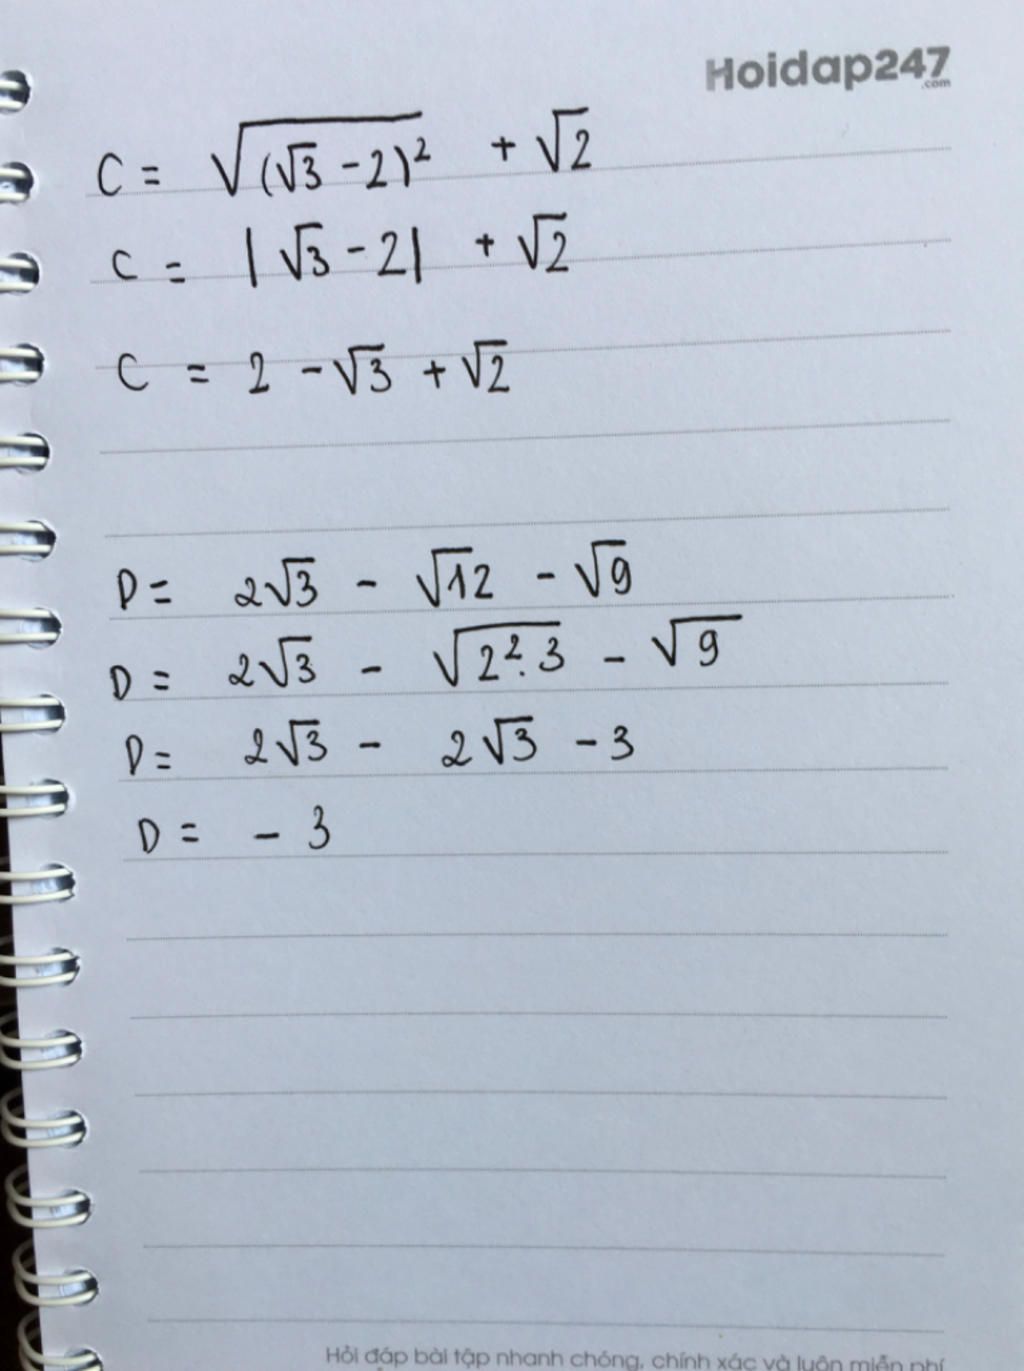 Hoidap247
.com
C = √(√3 - 2)² + √2
C = |√3 - 2| + √2
C = 2 - √3 + √2
D = 2√3 - √12 - √9
D = 2√3 - √2².3 - √9
D = 2√3 - 2√3 - 3
D = - 3
Hỏi đáp bài tập nhanh chóng, chính xác và luôn miễn phí